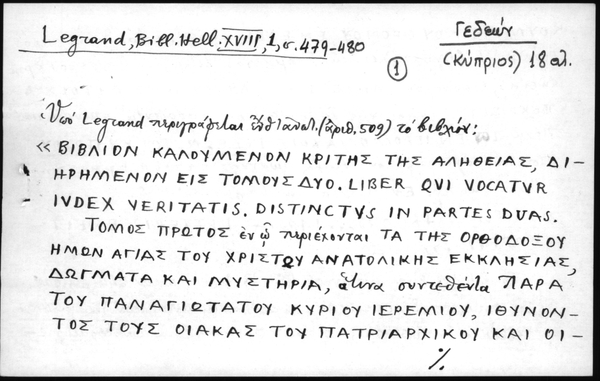 Legrand, Bibl. Hell. XVIII, 1, σ. 479-480
Γεδεών
(Κύπριος) 18 αι.
1
Ὑπό Legrand περιγράφεται (ἀριθ. 509) τό βιβλίον:
« ΒΙΒΛΙΟΝ ΚΑΛΟΥΜΕΝΟΝ ΚΡΙΤΗΣ ΤΗΣ ΑΛΗΘΕΙΑΣ, ΔΙ-
ΗΡΗΜΕΝΟΝ ΕΙΣ ΤΟΜΟΥΣ ΔΥΟ. LIBER QVI VOCATVR
IVDEX VERITATIS. DISTINCTVS IN PARTES DVAS.
ΤΟΜΟΣ ΠΡΩΤΟΣ ἐν ᾧ περιέχονται ΤΑ ΤΗΣ ΟΡΘΟΔΟΞΟΥ
ΗΜΩΝ ΑΓΙΑΣ ΤΟΥ ΧΡΙΣΤΩΥ ΑΝΑΤΟΛΙΚΗΣ ΕΚΚΛΗΣΙΑΣ,
ΔΩΓΜΑΤΑ ΚΑΙ ΜΥΣΤΗΡΙΑ, ἅτινα συντεθέντα ΠΑΡΑ
ΤΟΥ ΠΑΝΑΓΙΩΤΑΤΟΥ ΚΥΡΙΟΥ ΙΕΡΕΜΙΟΥ, ΙΘΥΝΟΝ-
ΤΟΣ ΤΟΥΣ ΟΙΑΚΑΣ ΤΟΥ ΠΑΤΡΙΑΡΧΙΚΟΥ ΚΑΙ ΟΙ-
./.